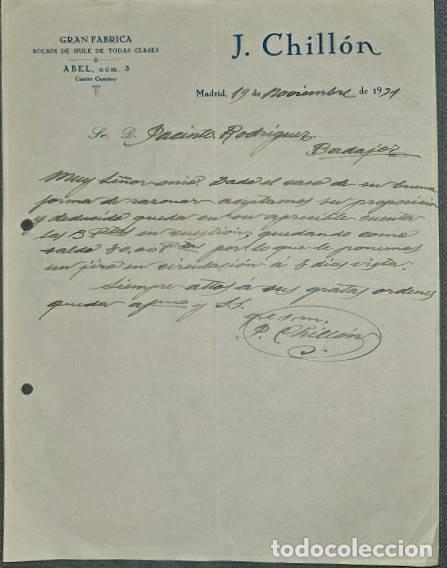 GRAN FABRICA
BOLSOS DE HULE DE TODAS CLASES
ABEL, núm. 3
Cuatro Caminos
J. Chillón
Madrid, 19 de Noviembre de 1931
Sr. D. Jacinto Rodriguez
Badajoz
Muy Señor mio. Dado el caso de su buena
forma de razonar aceptamos su proposicion
y deducido queda en su aprecible cuenta
las 3 Ptas en cuestión, quedando como
saldo 80,00 Ptas por lo que le ponemos
un jiro en circulación á 8 dias vista.
Siempre attos á sus gratas ordenes
quedan afmos y S.S.
q.e.s.m.
P. Chillón
todocoleccion